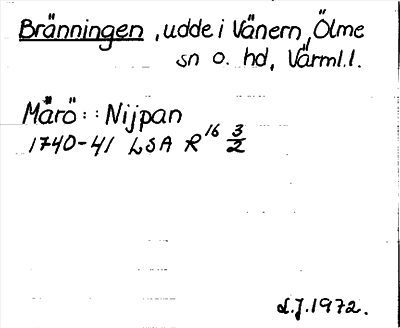 Bränningen, udde i Vänern, Ölme
sn o. hd, Värml.l.
Märö :: Nijpan
1740-41 LSA R 16 3/2
L.J. 1972.